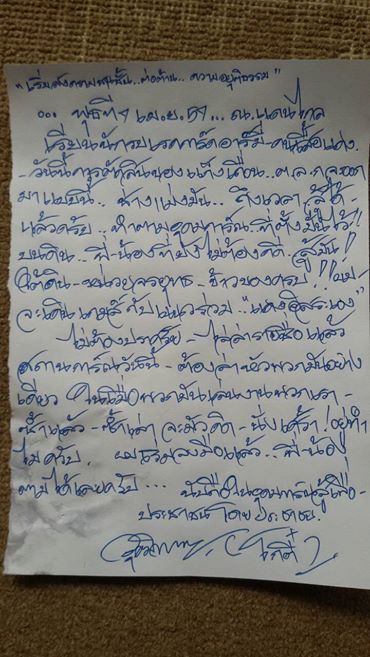 "เริ่มสงครามชนชั้น..ต่อต้าน..ความอยุติธรรม"
... พุธที่ ๗ เม.ย. ๕๗ ... ณ.แดนไกล
เรียนนักรบเรดการ์ดอาร์มี่-คนเสื้อแดง.
-วันนี้การตัดสินของแก๊งเถื่อน..ต.ล.ก.จะออก
มาแบบนี้.. ช่างแม่งมัน.. ถึงเวลา สู้ได้
แล้วครับ.. ทำตามอุดมการณ์-ที่ตั้งมั่นไว้!
บนดิน.. พี่-น้องที่ ไม่ต้องคิด.. สู้มัน!!
ใต้ดิน-หน่วย - ของครับ!! ผม
จะเดินเกมส์กับแนวร่วม.. "แดงอิสระเอง"
ไม่ต้องปราศรัย - ไล่ล่ารายชื่อแล้ว
สถานการณ์วันนี้ - ต้องล่าหัวพวกมันอย่าง
เดียว ในเมื่อพวกมันเล่นงานพวกเรา-
ซ้ำแล้ว-ซ้ำเล่า จะมัวคิด-นั่งเศร้า! อยู่ทำ
ไมครับ. ผม ลงมือแล้ว..พี่-น้อง
ตามได้เลยครับ... นับถือในอุดมการณ์สู้เพื่อ-
ประชาชน โดยประชาชน.
(โกตี๋)